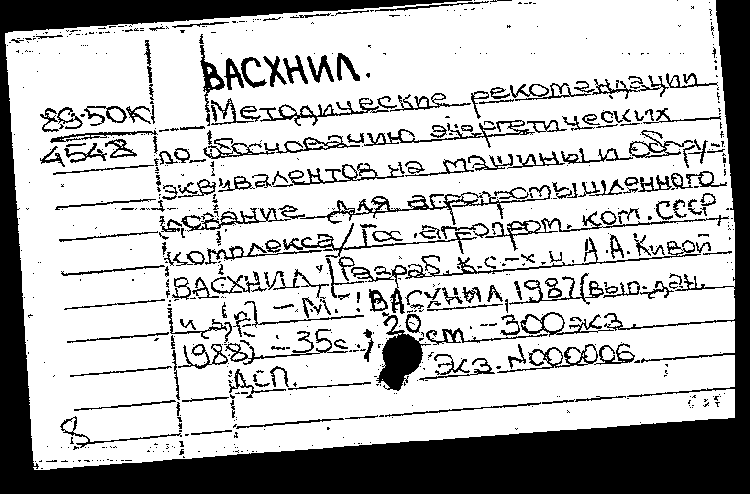 ВАСХНИЛ.
89-50К Методические рекомендации
4548 по обоснованию энергетических
эквивалентов на машины и обору-
дование для агропромышленного
комплекса / Гос. агропром. ком. СССР,
ВАСХНИЛ; [Разраб. к.с.-х.н. А.А. Кивой
и др.] - М.: ВАСХНИЛ, 1987 (вып. дан.
1988) - 35с.; 20 см. - 300 экз.
ДСП. Экз. N000006.
8